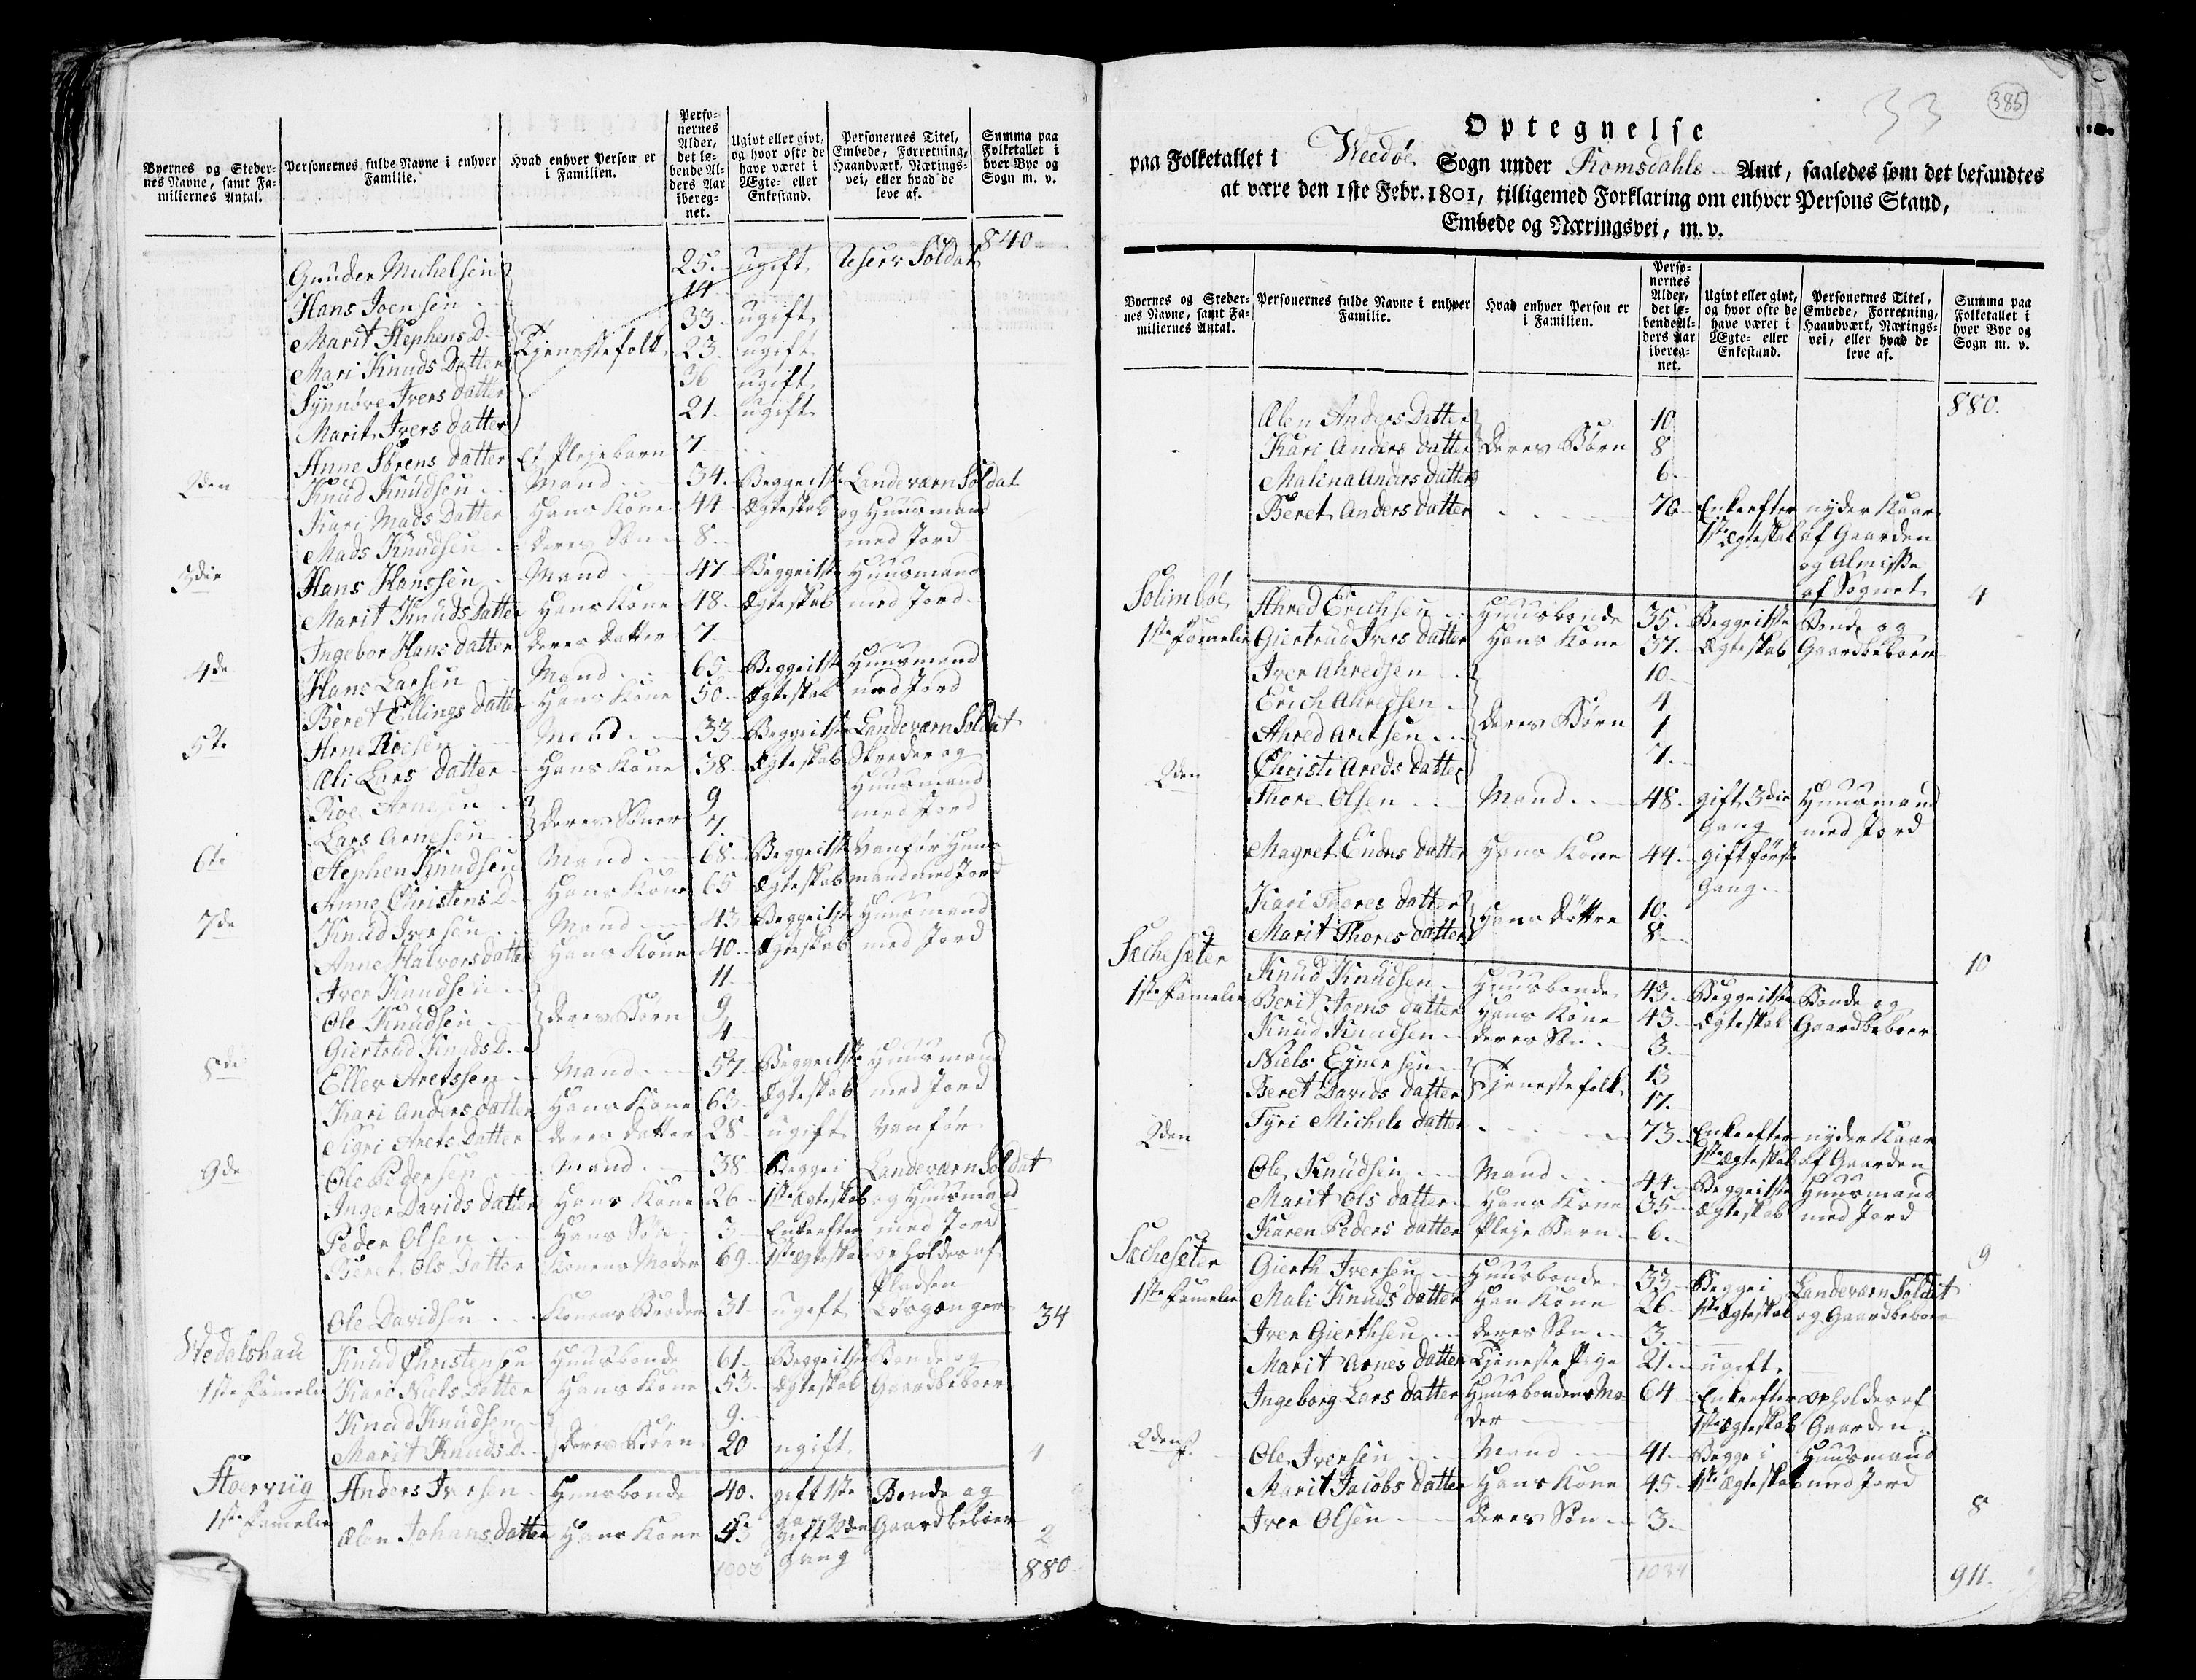 Byernes og Steder-
nes Navne, samt Fa-
miliernes Antal.
Personernes fulde Navne i enhver
Familie.
Hvad enhver Person er
i Familien.
Perso-
nernes
Alder,
det lø-
bende Al-
ders Aar
ibereg-
net.
Ugivt eller givt,
og hvor ofte de
have været i
Ægte- eller
Enkestand.
Personernes Titel,
Embede, Forretning,
Haandværk, Nærings-
vei, eller hvad de
leve af.
Summa paa
Folketallet i
hver Bye og
Sogn m. v.
840
Gunder Michelsen 25. ugift Reserv Soldat
Hans Joensen 14
Marit Stephens D. Tjenestefolk 33 ugift
Mari Knuds Datter 23. ugift
Synnøve Ivers datter 36 ugift
Marit Ivers datter 21. ugift
Anne Sørens datter Et Plejebarn 7
2den Knud Knudsen Mand 34. Begge i 1ste Landeværn Soldat
Kari Mads Datter Hans Kone 44 Ægteskab og Huusmand
Mads Knudsen deres Søn 8 med Jord
3die Hans Hanssen Mand 47 Begge i 1ste Huusmand
Marit Knuds Datter Hans Kone 48 Ægteskab med Jord
Ingebor Hans datter deres Datter 7
4de Hans Larsen Mand 65 Begge i 1ste Huusmand
Beret Ellings datter Hans Kone 50 Ægteskab med Jord
5te Arne Roesen Mand 33 Begge i 1ste Landeværn Soldat
Æli Lars datter Hans Kone 38 Ægteskab Skreder og
Huusmand
Roe Arnesen deres Sønner 9 med Jord
Lars Arnesen 7.
6te Stephen Knudsen Mand 68 Begge i 1ste Vanfør Huus
Anne Christens D. Hans Kone 65 Ægteskab mand med Jord
7de Knud Iversen Mand 43 Begge i 1ste Huusmand
Anne Halvors datter Hans Kone 40 Ægteskab med Jord
Iver Knudsen 11
Ole Knudsen deres Børn 9
Giertrud Knuds D. 4
8de Eller Aretssen Mand 57 Begge i 1ste Huusmand
Kari Anders datter Hans Kone 63 Ægteskab med Jord
Sigri Arets Datter deres Datter 28 ugift Vanfør
9de Ole Pedersen Mand 38 Begge i Landeværn Soldat
Inger Davids datter Hans Kone 26 1ste Ægteskab og Huusmand
Peder Olsen Hans Søn 3 med Jord
Beret Ols Datter Konens Moder 69 Enke efter 1ste Ægteskab opholdes af
Pladsen
Ole Davidsen Konens Broder 31 ugift Løsgænger 34
Stedalshau Knud Christensen Huusbonde 61 Begge i 1ste Bonde og
1ste Familie Kari Niels Datter Hans Kone 53 Ægteskab Gaardbeboer
Knud Knudsen 9
Marit Knuds D. deres Børn 20 ugift 4
Anders Iversen Huusbonde 40. gift 1ste Bonde og
1ste Familie Ælen Johans datter Hans Kone 43 gift 2den Gaardbeboer 2
Gang
1003 880
385
33
Optegnelse
paa Folketallet i Weedøe Sogn under Romsdahls Amt, saaledes som det befandtes
at være den 1ste Febr. 1801, tilligemed Forklaring om enhver Persons Stand,
Embede og Næringsvei, m. v.
Byernes og Steder-
nes Navne, samt Fa-
miliernes Antal.
Personernes fulde Navne i enhver
Familie.
Hvad enhver Person er
i Familien.
Perso-
nernes
Alder,
det lø-
bende Al-
ders Aar
ibereg-
net.
Ugivt eller givt,
og hvor ofte de
have været i
Ægte- eller
Enkestand.
Personernes Titel,
Embede, Forretning,
Haandværk, Nærings-
vei, eller hvad de
leve af.
Summa paa
Folketallet i
hver Bye og
Sogn m. v.
880.
Ælen Anders Datter 10
Kari Anders datter deres Børn 8
Malina Anders datter 6
Beret Anders datter 76 Enke efter nyder Kaar
1ste Ægteskab af Gaarden
og Almisse
af Sognet 4
Solimbøe Ahred Erichsen Huusbonde 35. Begge i 1ste Bonde og
1ste Familie Giertrud Ivers datter Hans Kone 37. Ægteskab Gaardbeboer
Iver Ahredsen 10
Erich Ahredsen 4
Ahred Aretsen deres Børn 1
Christi Areds datter 7
2den Thore Olsen Mand 48. gift 3die Huusmand
Gang med Jord
Magret Endres datter Hans Kone 44. gift første
Gang
Kari Thores datter Hans Døttre 10
Marit Thores datter 8
10
Sæchesæter Knud Knudsen Huusbonde 43. Begge i 1ste Bonde og
1ste Familie Berit Joens datter Hans Kone 43 Ægteskab Gaardbeboer
Knud Knudsen deres Søn 3
Niels Ejnersen Tjenestefolk 13
Beret Davids datter 17.
Tyri Michels datter 73 Enke efter nyder Kaar
1ste Ægteskab af Gaarden
2den Ole Knudsen Mand 44 Begge i 1ste Huusmand
Marit Ols datter Hans Kone 35 Ægteskab med Jord
Karen Peders datter Pleje Barn 6.
9
Sæchesæter Gierth Iversen Huusbonde 33 Begge i Landeværn Soldat
1ste Familie Mali Knuds datter Han Kone 26 1ste Ægteskab og Gaardbeboer
Iver Gierthsen deres Søn 3
Marit Arnes datter Tjeneste Pige 21 ugift
Ingeborg Lars datter Huusbondens Mo- 64 Enke efter opholdes af
der 1ste Ægteskab Gaarden
2den Ole Iversen Mand 41 Begge i Huusmand
Marit Jacobs datter Hans Kone 45 1ste Ægteskab med Jord
Iver Olsen deres Søn 3 8
1034 911.